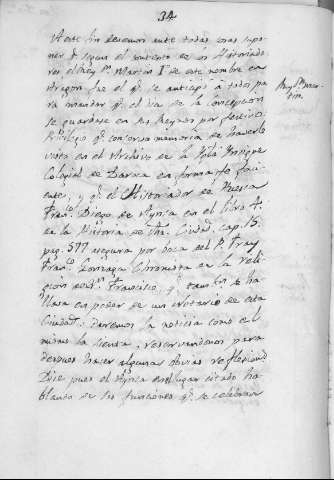 34
A este fin devemos ante todas cosas supo-
ner q.e segun el contexto de los Historiado-
res el Rey D.n Martin I de este nombre en
Aragon fue el q.e se anticipó á todos pa-
ra mandar q.e el dia de la Concepcion
se guardase en sus Reynos por festivo:
Privilegio q.e conserva memoria de haverle
visto en el Archivo de la Ygla Ynsigne
Colegial de Daroca en forma fe facien-
te; y q.e el Historiador de Huesca
Fran.co Diego de Aynsa en el libro 4.
en la Historia de dha. Ciudad, cap. 15.
pag. 577 asegura por boca del P. Fray
Fran.co Gonzaga Chronista en la Reli-
gion de S.n Francisco, q.e tambn se ha-
llava en poder de un Notario de esta
Ciudad; daremos la noticia como el
mismo la sienta, reservandonos para
despues hacer algunas obvias reflexiones
Dice pues el Aynsa en el lugar citado ha-
blando de las funciones q.e se celebran
Rey D.n Mar-
tin.